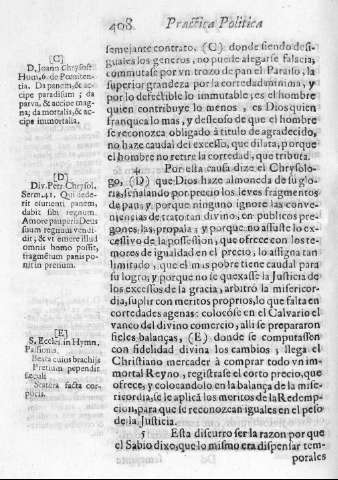 408. Practica Politica
[C]
D. Joann. Chrysost.
Hum. 6. de Pœniten-
tia. Da panem, & ac-
cipe paradisum; da
parva, & accipe mag-
na; da mortalia, & ac-
cipe immortalia.
[D]
Div. Petr. Chrysol.
Serm. 41. Qui dede-
rit esurienti panem,
dabit sibi regnum.
Amore pauperis Deus
suum regnum vendi-
dit; & vt emere illud
omnis homo possit,
fragmentum panis po-
nit in pretium.
[E]
S. Eccles. in Hymn.
Passionis.
Beata cuius brachijs
Pretium pependit
sæculi
Statera facta cor-
poris.
semejante contrato. (C) donde siendo desi-
guales los generos, no puede alegarse falacia,
commutase por vn trozo de pan el Paraiso, la
superior grandeza por la cortedad minima, y
por lo defectible lo immutable; es el hombre
quien contribuye lo menos, es Dios quien
franquea lo mas, y deseoso de que el hombre
se reconozca obligado à titulo de agradecido,
no haze caudal del excesso, que dilata, porque
el hombre no retire la cortedad, que tributa.
4 Por esta causa dize el Chrysolo-
go, (D) que Dios haze almoneda de su glo-
ria, señalando por precio los leves fragmentos
de pan; y porque ninguno ignore las conve-
niencias de trato tan divino, en publicos pre-
gones las propala; y porque no assuste lo ex-
cessivo de la possession, que ofrece con los te-
mores de igualdad en el precio, lo assigna tan
limitado, que el mas pobre tiene caudal para
su logro; y porque no se quexasse la Justicia de
los excessos de la gracia, arbitrò la misericor-
dia, suplir con meritos proprios, lo que falta en
cortedades agenas: colocòse en el Calvario el
vanco del divino comercio, alli se prepararon
fieles balanças, (E) donde se computassen
con fidelidad divina los cambios; llega el
Christiano mercader à comprar todo vn im-
mortal Reyno, registrase el corto precio, que
ofrece, y colocandolo en la balança de la mise-
ricordia, se le aplicà los meritos de la Redemp-
cion, para que se reconozcan iguales en el peso
de la Justicia.
5 Esta discurro ser la razon por que
el Sabio dixo, que lo mismo era dispensar tem-
porales